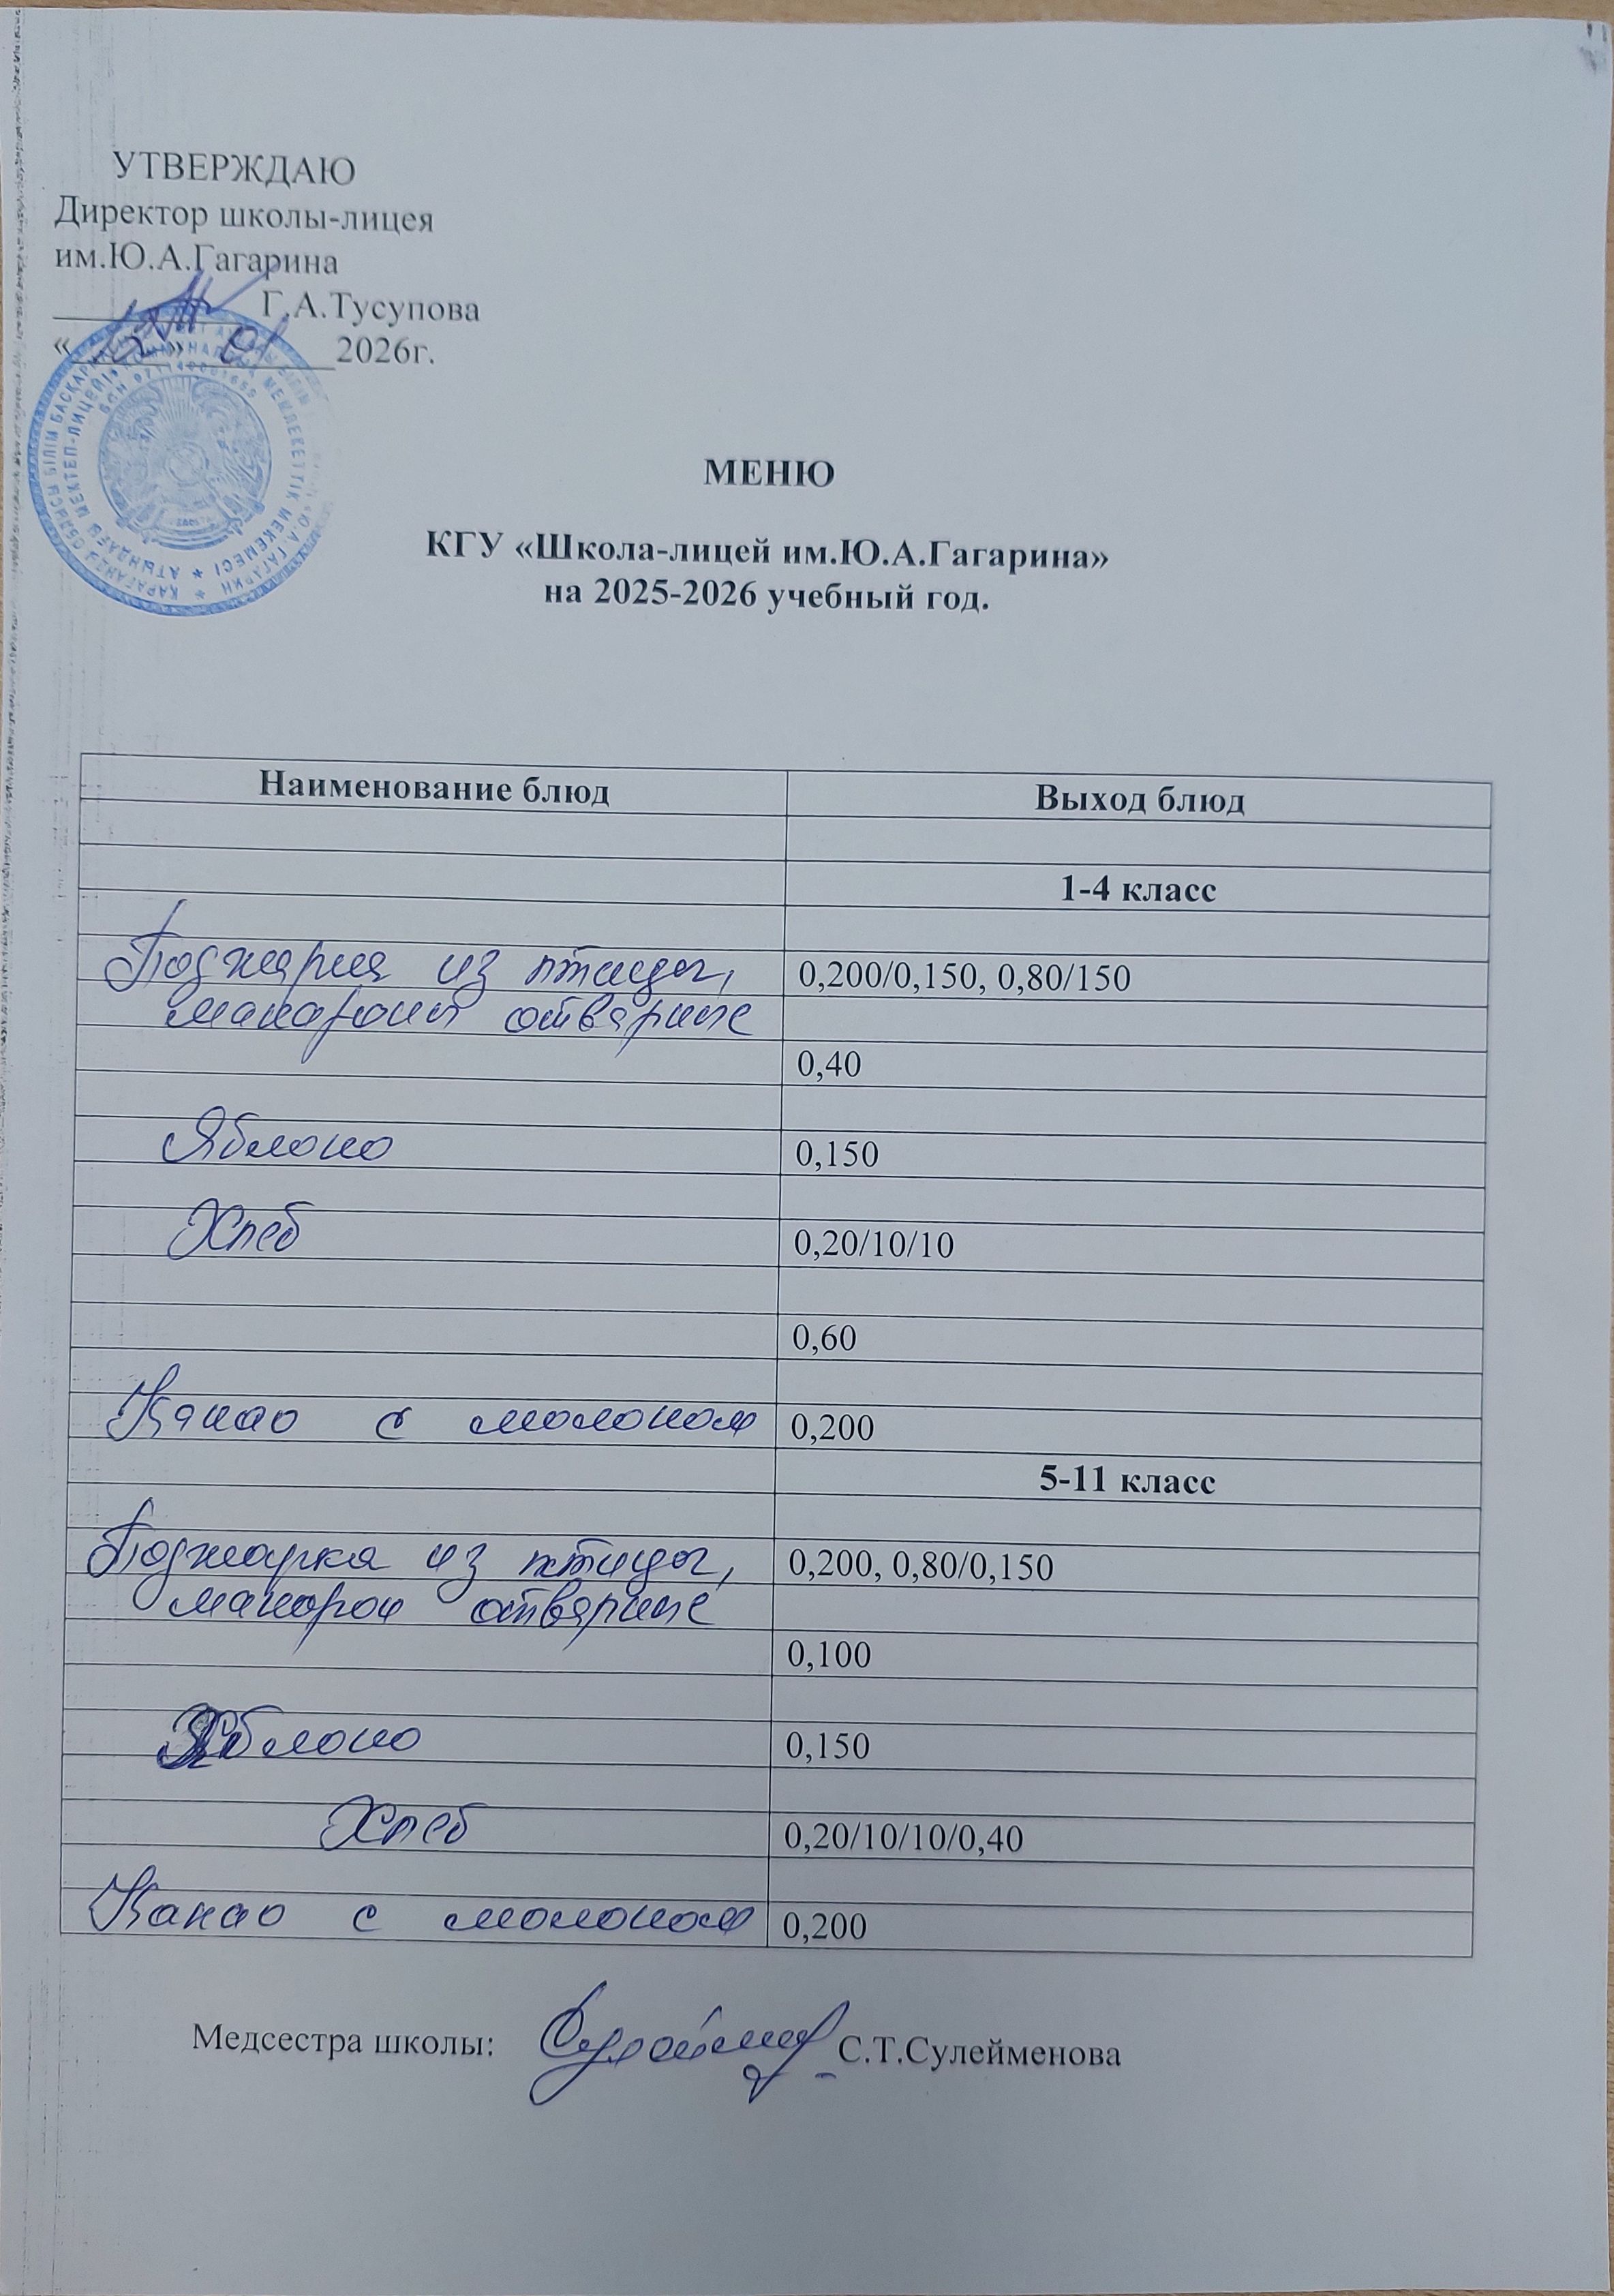 УТВЕРЖДАЮ
Директор школы-лицея
им.Ю.А.Гагарина
Г.А.Тусупова
« » 01 2026г.
МЕНЮ
КГУ «Школа-лицей им.Ю.А.Гагарина»
на 2025-2026 учебный год.
Наименование блюд Выход блюд
1-4 класс
Поджарка из птицы, 0,200/0,150, 0,80/150
макароны отварные
0,40
Яблоко 0,150
Хлеб 0,20/10/10
0,60
Какао с молоком 0,200
5-11 класс
Поджарка из птицы, 0,200, 0,80/0,150
макарон отварные
0,100
Яблоко 0,150
Хлеб 0,20/10/10/0,40
Какао с молоком 0,200
Медсестра школы: С.Т.Сулейменова